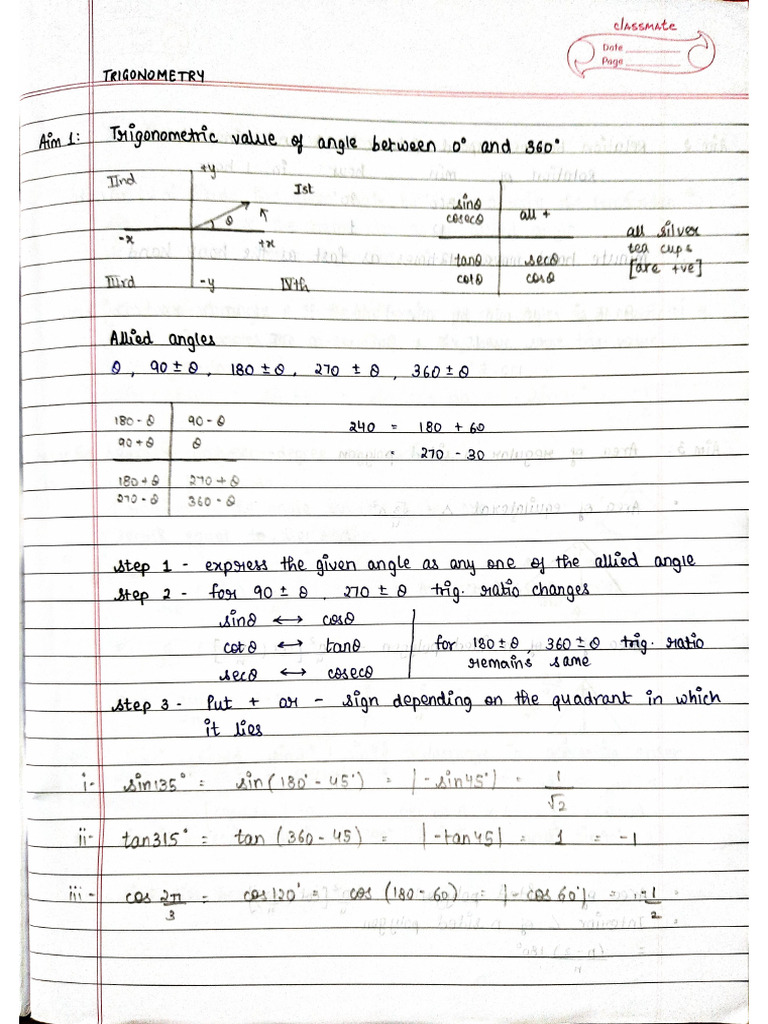 classmate
Date
Page
TRIGONOMETRY
Aim 1: Trigonometric value of angle between 0° and 360°
IInd +y Ist
θ
-x +x
IIIrd -y IVth
sinθ
cosecθ all +
tanθ secθ
cotθ cosθ
all silver
tea cups
[are +ve]
Allied angles
θ, 90 ± θ, 180 ± θ, 270 ± θ, 360 ± θ
180 - θ 90 - θ
90 + θ θ
180 + θ 270 + θ
270 - θ 360 - θ
240 = 180 + 60
= 270 - 30
Step 1 - express the given angle as any one of the allied angle
Step 2 - for 90 ± θ, 270 ± θ trig. ratio changes
sinθ ↔ cosθ
cotθ ↔ tanθ for 180 ± θ, 360 ± θ trig. ratio
secθ ↔ cosecθ remains same
Step 3 - Put + or - sign depending on the quadrant in which
it lies
i- sin135° = sin(180° - 45°) = |-sin45°| = 1/√2
ii- tan315° = tan (360 - 45) = |-tan45| = 1 = -1
iii- cos 2π/3 = cos120° = cos (180 - 60) = |-cos60°| = -1/2